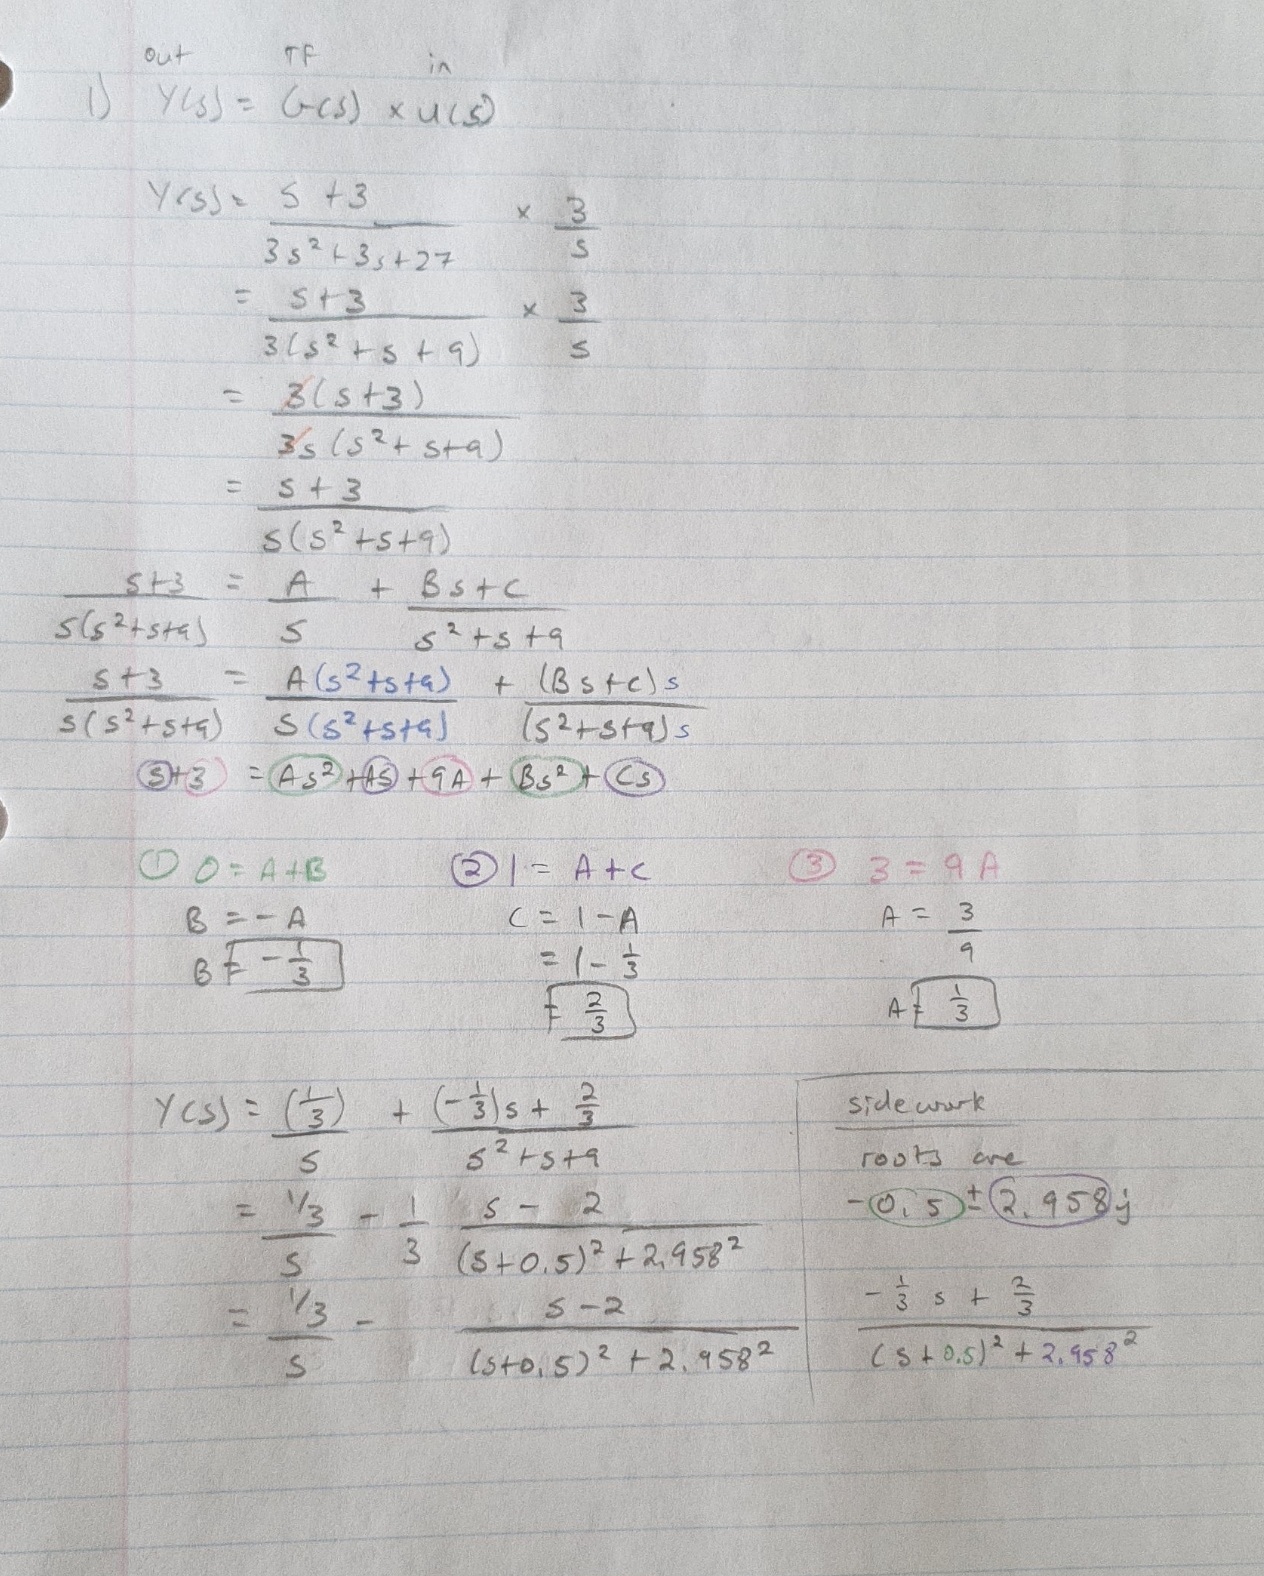 out TF in
1) Y(s) = G(s) × U(s)
Y(s) = s + 3 × 3
3s² + 3s + 27 s
= s + 3 × 3
3(s² + s + 9) s
= 3(s + 3)
3s (s² + s + 9)
= s + 3
s(s² + s + 9)
s + 3 = A + Bs + C
s(s² + s + 9) s s² + s + 9
s + 3 = A(s² + s + 9) + (Bs + c)s
s(s² + s + 9) s(s² + s + 9) (s² + s + 9)s
s + 3 = As² + As + 9A + Bs² + Cs
① 0 = A + B ② 1 = A + C ③ 3 = 9A
B = - A C = 1 - A A = 3
9
B = - 1/3 = 1 - 1/3
= 2/3 A = 1/3
Y(s) = (1/3) + (-1/3)s + 2/3
s s² + s + 9
= 1/3 - 1 s - 2
s 3 (s + 0.5)² + 2.958²
= 1/3 - s - 2
s (s + 0.5)² + 2.958²
side work
roots are
-0.5 ± 2.958j
- 1/3 s + 2/3
(s + 0.5)² + 2.958²